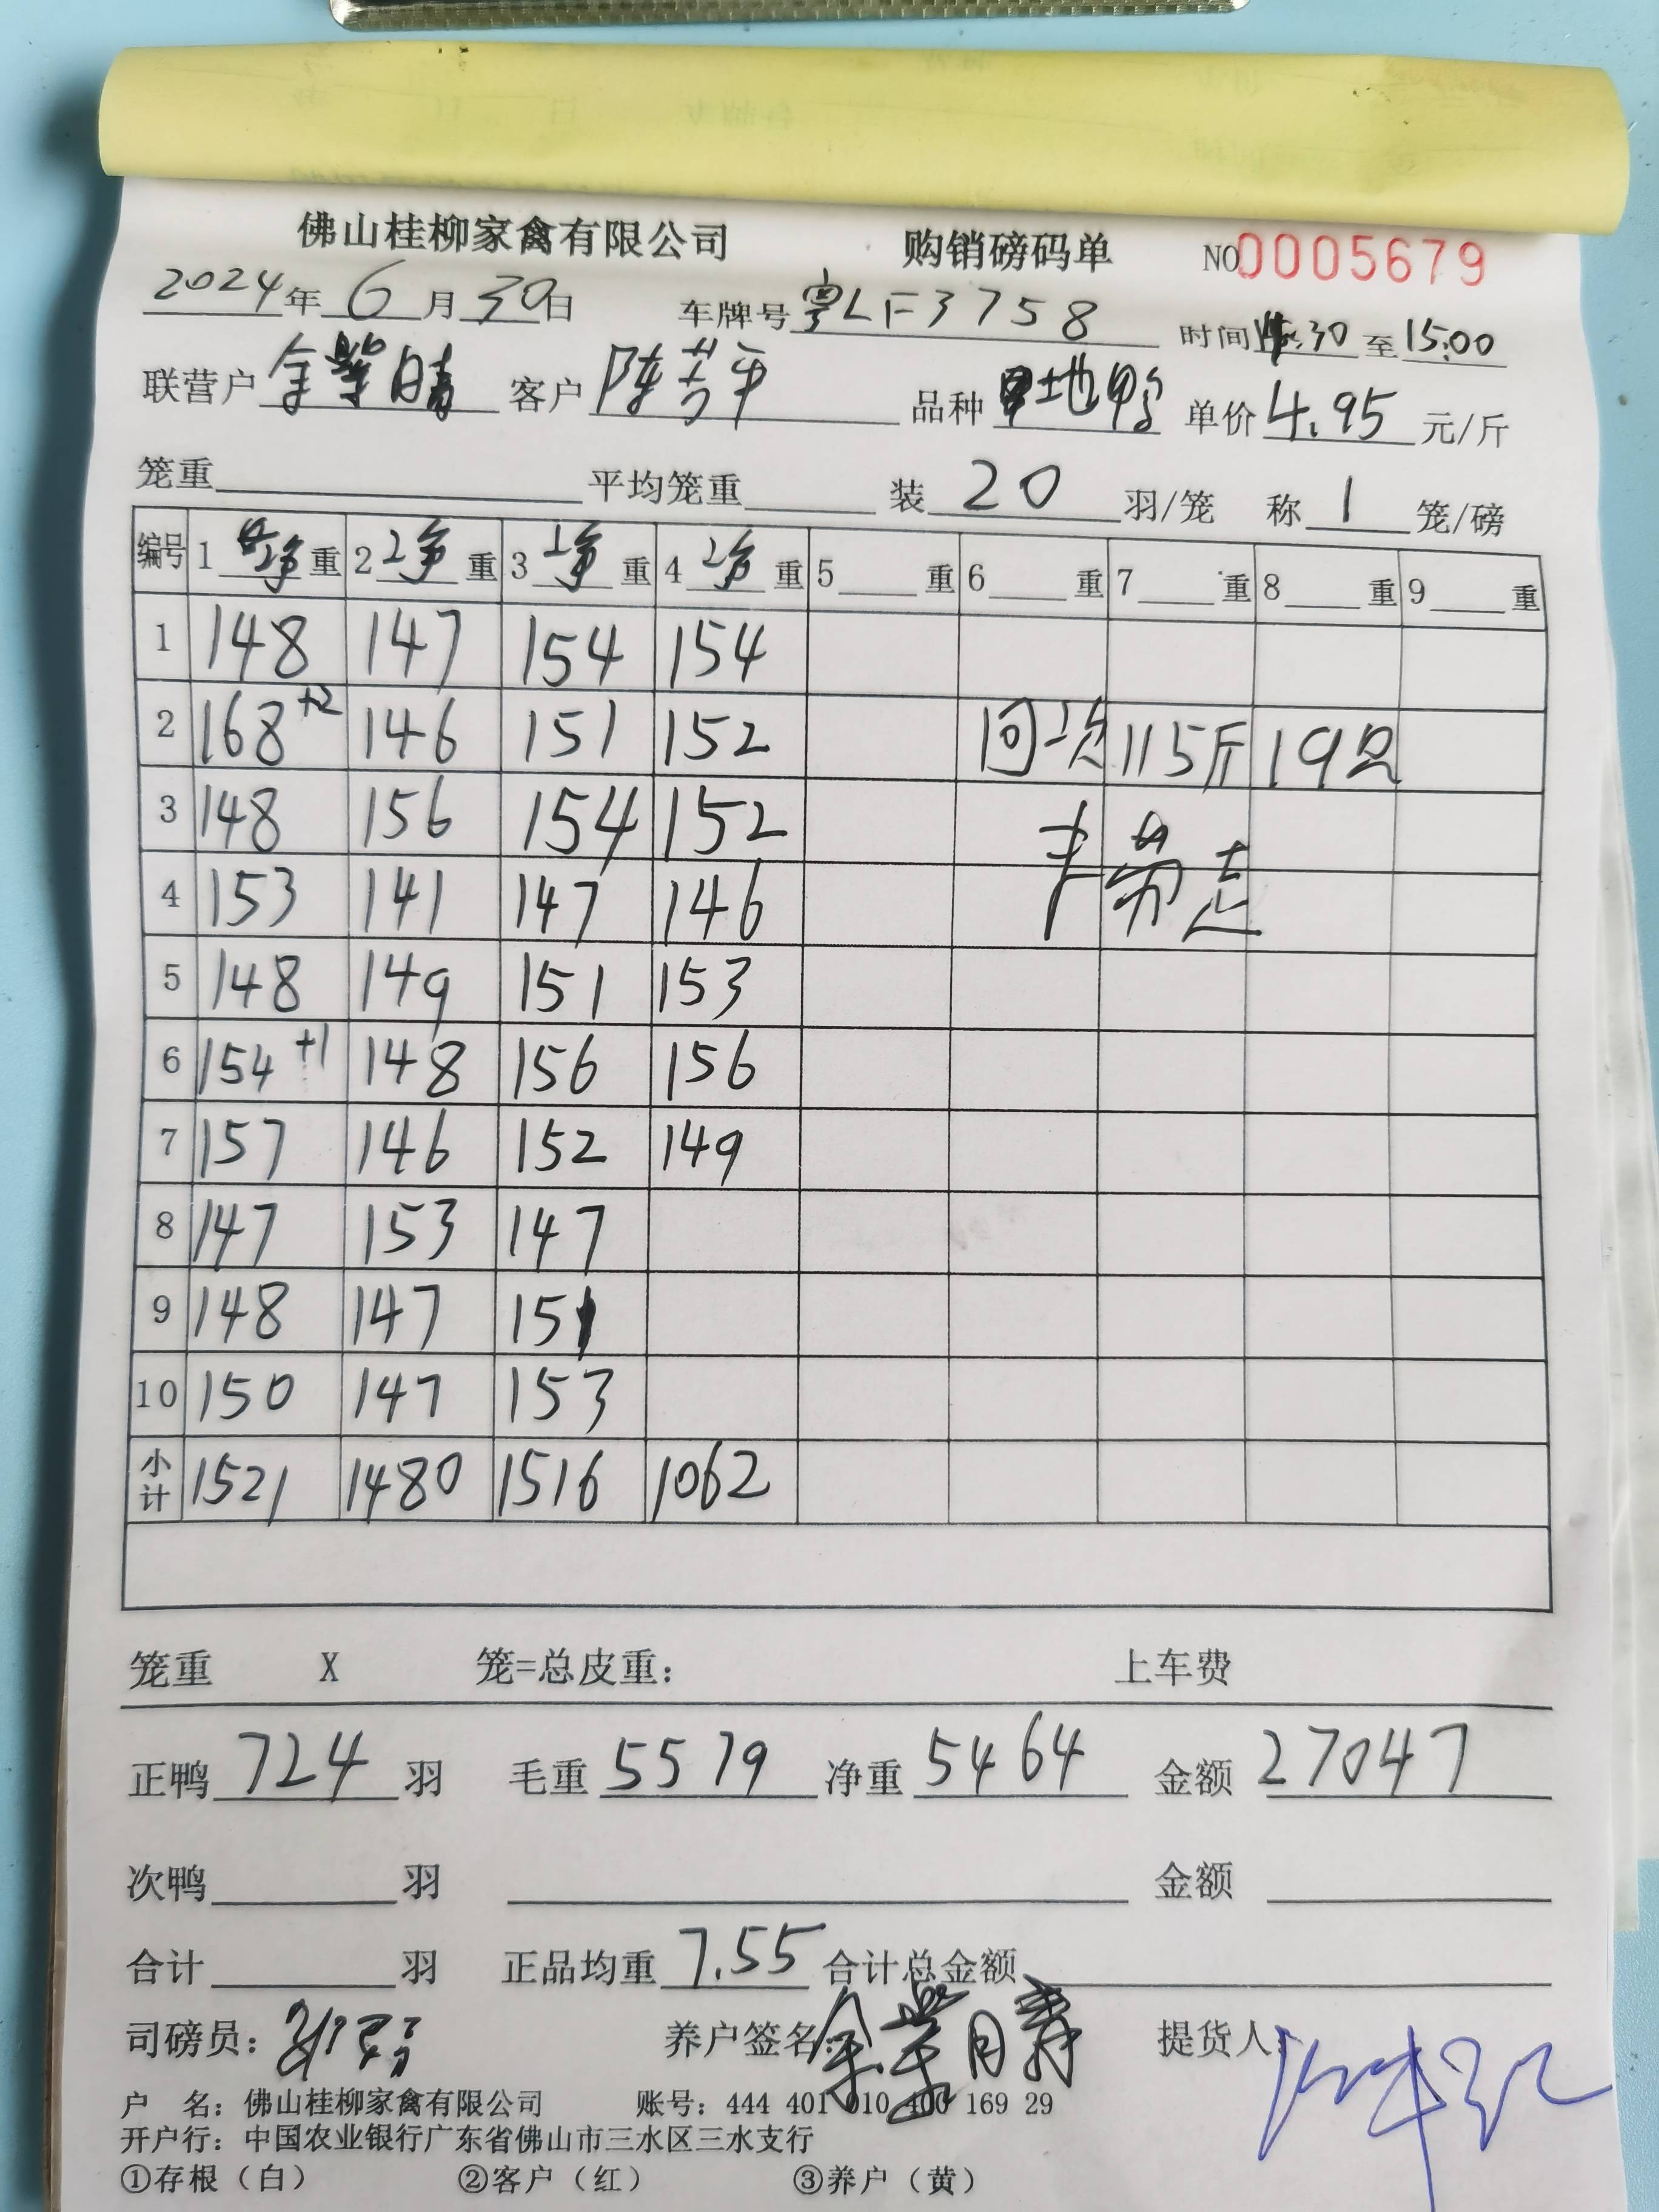 佛山桂柳家禽有限公司 购销磅码单 NO0005679
2024年6月30日 车牌号粤LF3758 时间:30至15:00
联营户 客户陈芳平 品种地鸭 单价4.95元/斤
笼重 平均笼重 装20羽/笼 称1笼/磅
编号 1净重 2净重 3净重 4净重 5重 6重 7重 8重 9重
1 148 147 154 154
2 168+2 146 151 152 回次 115斤 19只
3 148 156 154 152
4 153 141 147 146
5 148 149 151 153
6 154+1 148 156 156
7 157 146 152 149
8 147 153 147
9 148 147 151
10 150 147 153
小计 1521 1480 1516 1062
笼重 X 笼=总皮重: 上车费
正鸭724羽 毛重5579 净重5464 金额27047
次鸭 羽 金额
合计 羽 正品均重7.55 合计总金额
司磅员: 养户签名: 提货人:
户 名:佛山桂柳家禽有限公司 账号:444 401 010 400 169 29
开户行:中国农业银行广东省佛山市三水区三水支行
①存根(白) ②客户(红) ③养户(黄)